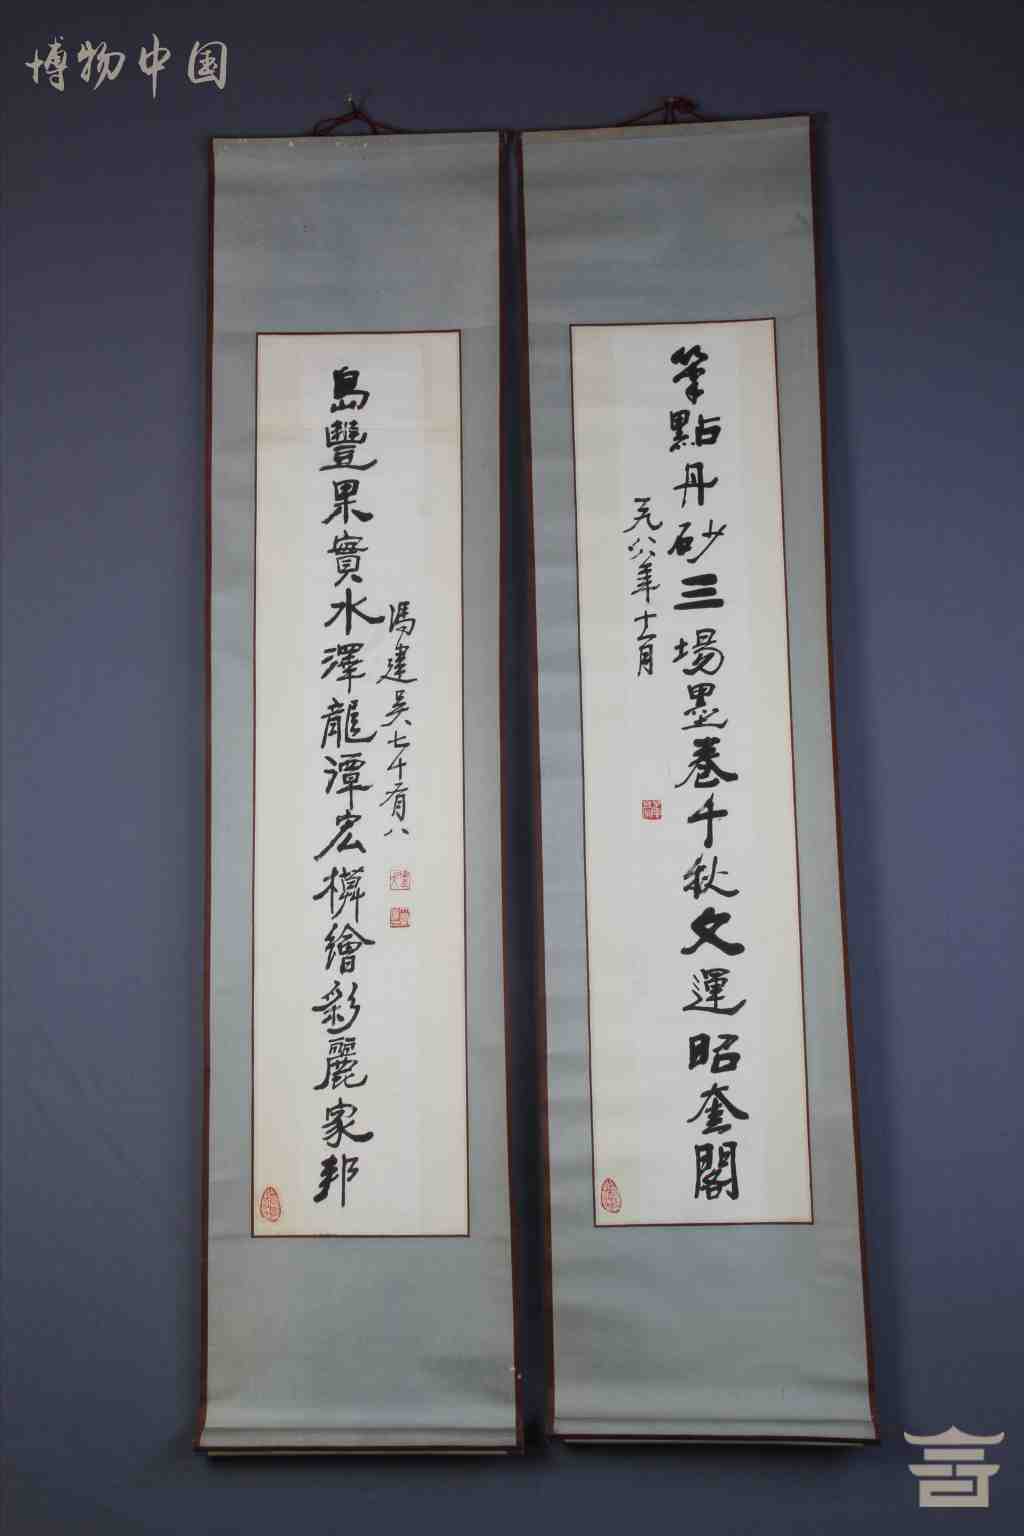 博物中国
筆點丹砂三場墨卷千秋文運昭奎閣
一九八八年十一月
島豐果實水澤龍潭宏模繪彩麗家邦
馮建吴七十有八